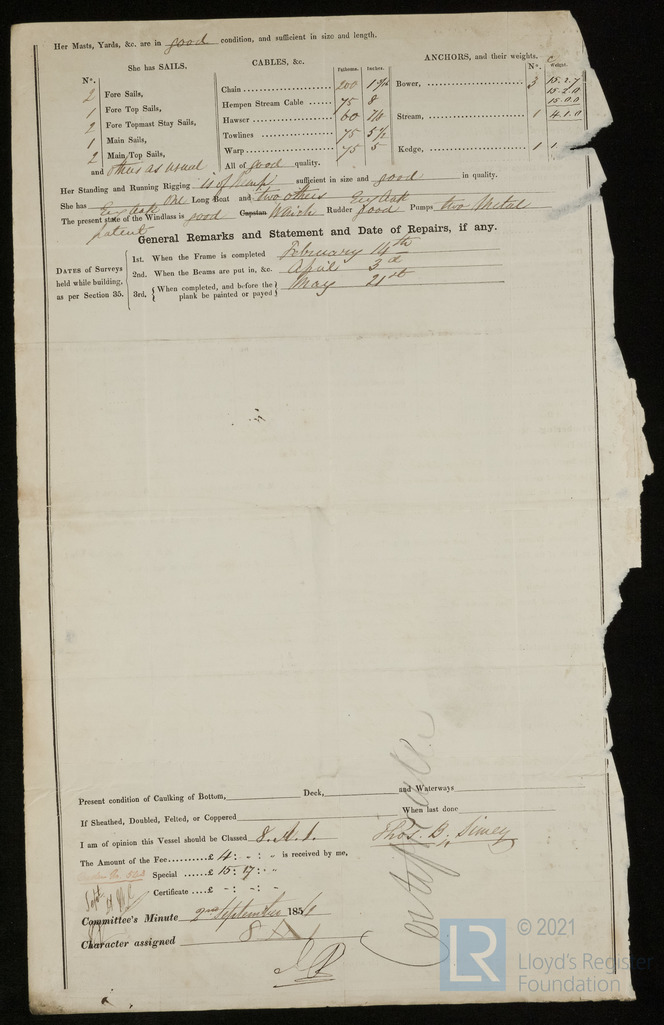 Her Masts, Yards, &c. are in good condition, and sufficient in size and length.
She has SAILS.
No.
2 Fore Sails,
1 Fore Top Sails,
2 Fore Topmast Stay Sails,
1 Main Sails,
2 Main Top Sails,
and others as usual
CABLES, &c. Fathoms. Inches.
Chain 200 1 9/16
Hempen Stream Cable 75 8
Hawser 60 7½
Towlines 75 5½
Warp 75 5
All of good quality.
ANCHORS, and their weights. No. Weight.
Bower, 3 15.2.7
15.2.0
15.0.0
Stream, 1 4.1.0
Kedge, 1 1
Her Standing and Running Rigging is of Hemp sufficient in size and good in quality.
She has One Long Boat and two others
The present state of the Windlass is good Capstan Winch Rudder good Pumps two Metal
patent
General Remarks and Statement and Date of Repairs, if any.
DATES of Surveys held while building, as per Section 35.
1st. When the Frame is completed February 14th
2nd. When the Beams are put in, &c. April 3d
3rd. When completed, and before the plank be painted or payed May 21st
Present condition of Caulking of Bottom, Deck, and Waterways
If Sheathed, Doubled, Felted, or Coppered When last done
I am of opinion this Vessel should be Classed 8.A.1 Thos. B. Simey
The Amount of the Fee £ 4 : - : - is received by me,
Special £ 15 : 17 : -
Sept
Certificate £ - : - : -
Committee's Minute 2nd September 185
Character assigned 8 A 1
© 2021
LR
Lloyd's Register
Foundation